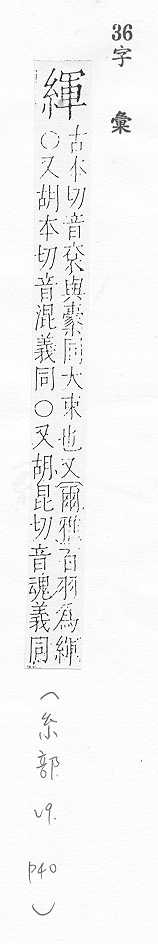 36
字彙
緷
古本切音袞與㯻同大束也又爾雅百羽為緷
○又胡本切音混義同○又胡昆切音魂義同
(糸部 v9. p40)